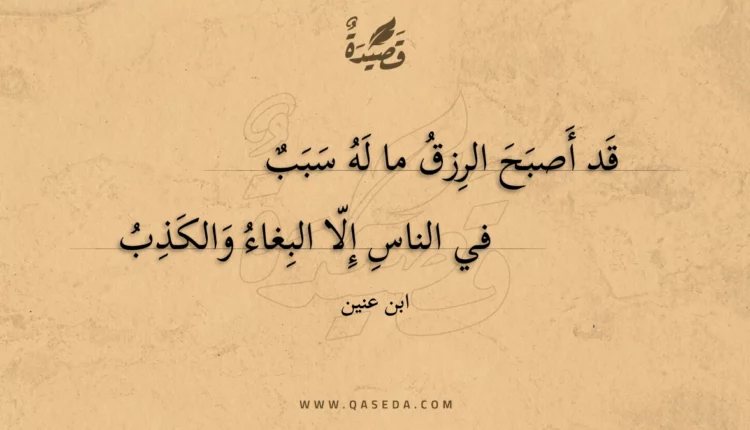 قَصِيْدَةٌ
قَد أَصبَحَ الرِزقُ ما لَهُ سَبَبٌ
في الناسِ إِلّا البِغاءُ وَالكَذِبُ
ابن عنين
WWW.QASEDA.COM